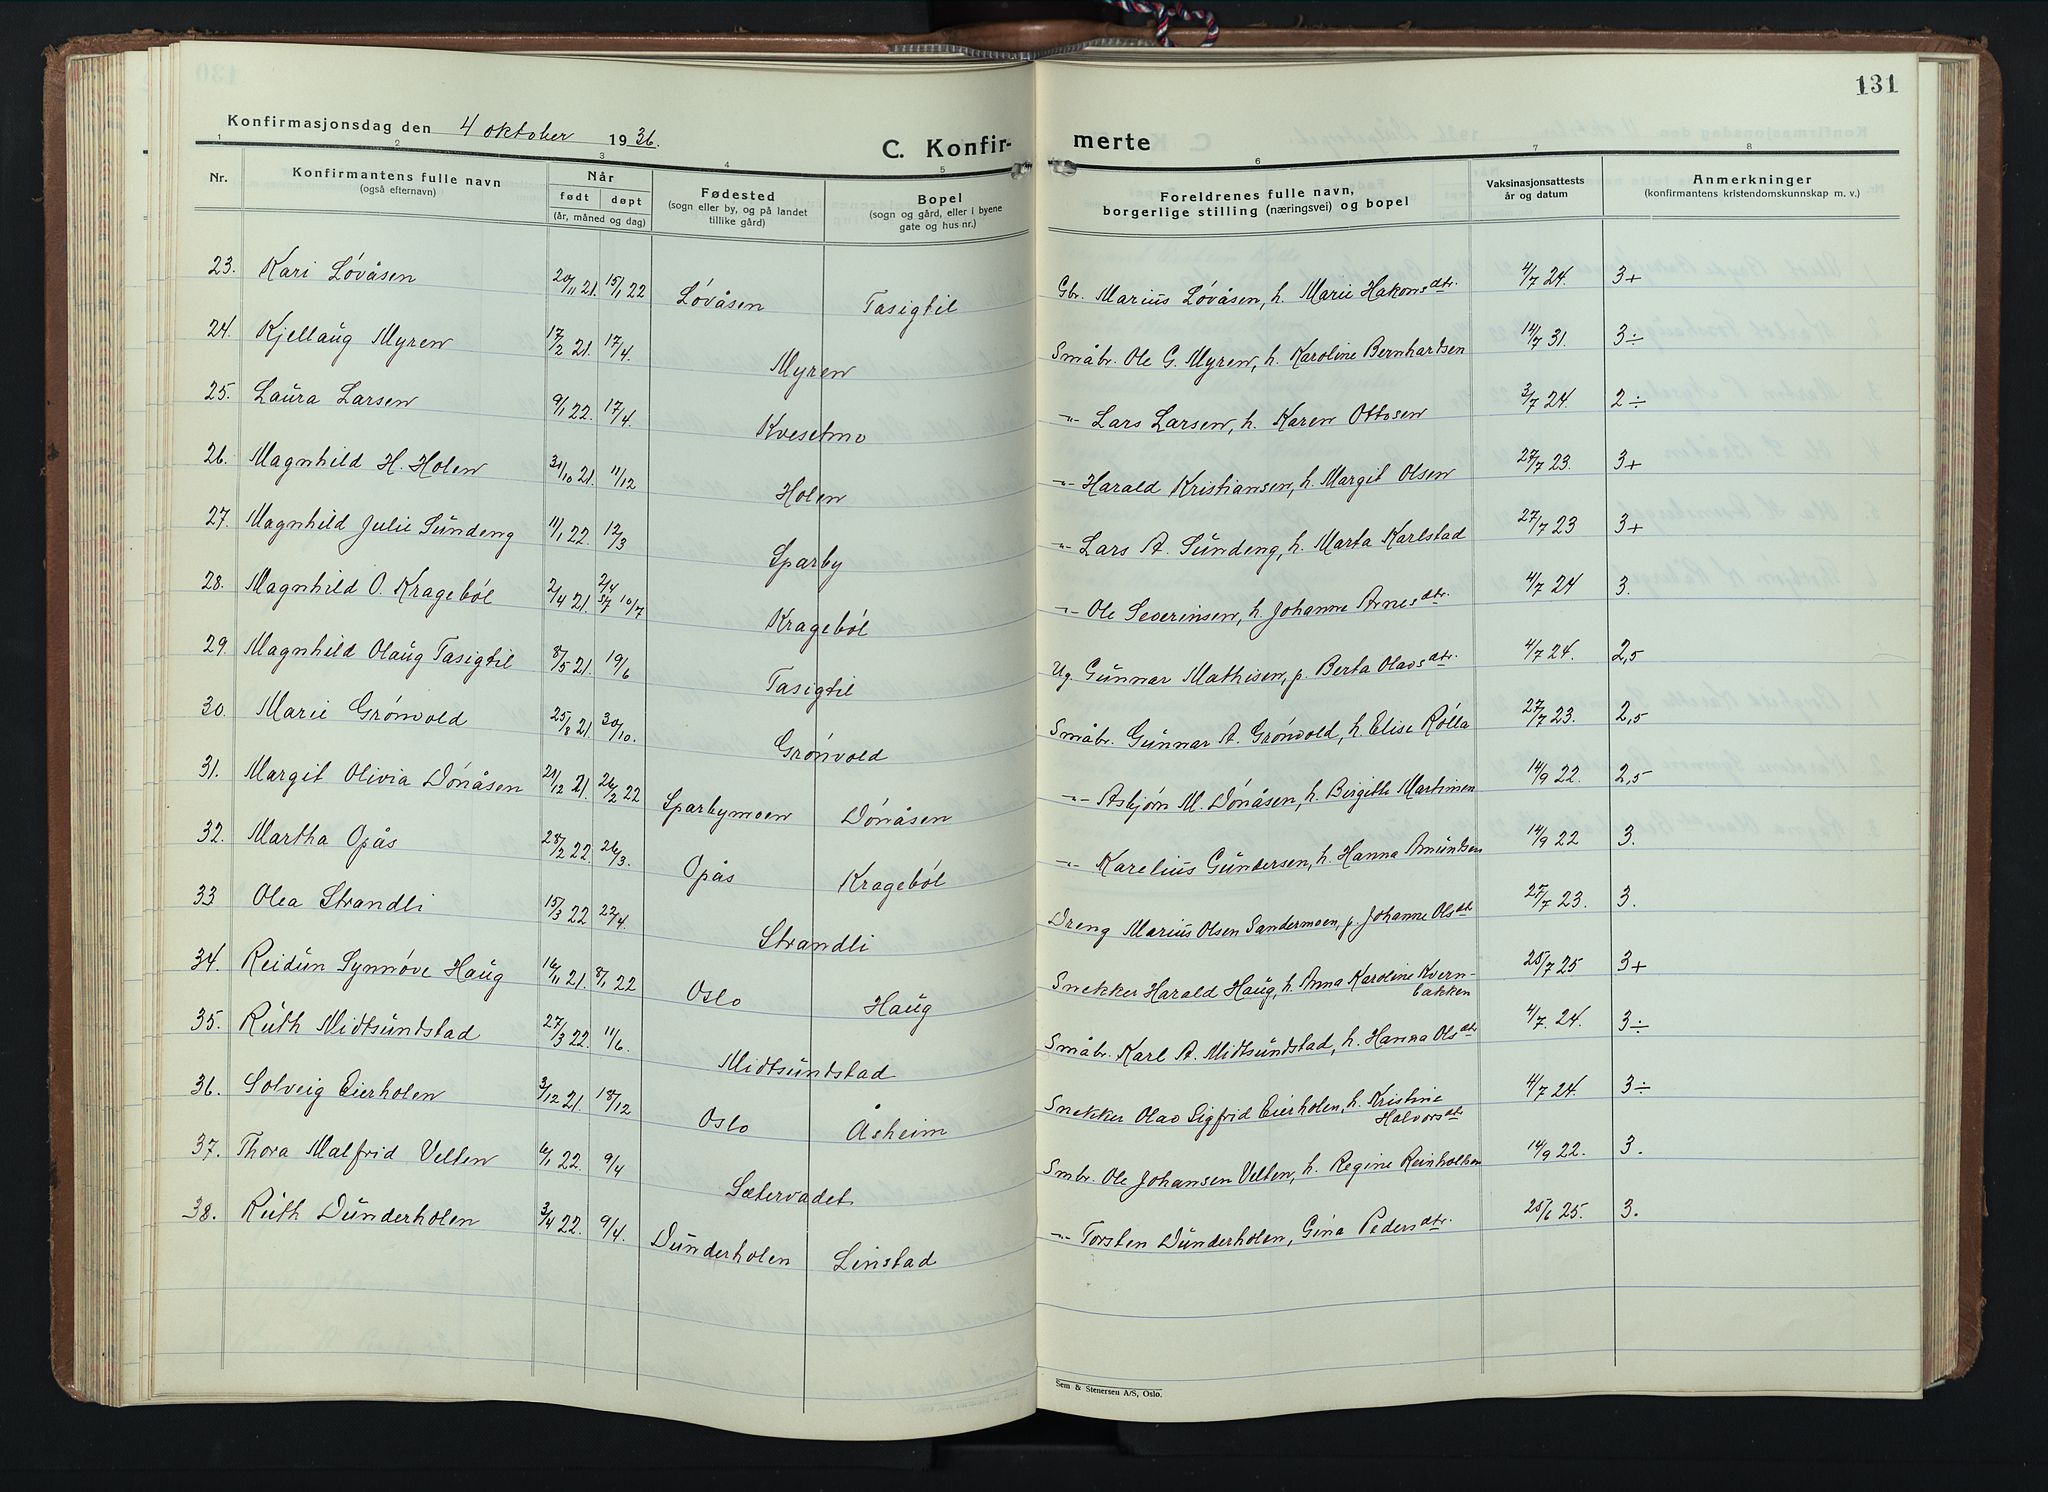 131
Konfirmasjonsdag den 4 oktober 1936.
C. Konfir- merte
1 2 3 4 5 6 7 8
Nr. Konfirmantens fulle navn (også efternavn) Når født døpt (år, måned og dag) Fødested (sogn eller by, og på landet tillike gård) Bopel (sogn og gård, eller i byene gate og hus nr.) Foreldrenes fulle navn, borgerlige stilling (næringsvei) og bopel Vaksinasjonsattests år og datum Anmerkninger (konfirmantens kristendomskunnskap m. v.)
23. Kari Løvåsen 20/11 21. 15/1 22 Løvåsen Tasigtil Gbr. Marius Løvåsen, h. Marie Hakonsdtr. 4/7 24. 3+
24. Kjellaug Myren 17/2 21. 17/4. Myren Småbr. Ole G. Myren, h. Karoline Bernhardsen 14/7 31. 3÷
25. Laura Larsen 9/1 22. 17/4. Kvesetmo -"- Lars Larsen, h. Karen Ottosen 3/7 24. 2÷
26. Magnhild H. Holen 31/10 21. 11/12 Holen -"- Harald Kristiansen, h. Margit Olsen 27/7 23. 3+
27. Magnhild Julie Sundeng 11/1 22. 12/3 Sparby -"- Lars A. Sundeng, h. Marta Karlstad 27/7 23 3+
28. Magnhild O. Krageböl 2/4 21. 10/7 Krageböl -"- Ole Severinsen, h. Johanne Arnesdtr. 4/7 24 3.
29. Magnhild Olaug Tasigtil 8/5 21. 19/6 Tasigtil Ug. Gunnar Mathisen, p. Berta Olavsdtr. 4/7 24. 2,5
30. Marie Grönvold 25/8 21. 30/10. Grönvold Småbr. Gunnar A. Grönvold, h. Elise Rölla 27/7 23. 2,5
31. Margit Olivia Dönåsen 21/12 21. 26/2 22 Sparbymoen Dönåsen -"- Asbjørn M. Dönåsen, h. Birgitte Martinsen 14/9 22. 2,5
32. Martha Opås 28/2 22. 26/3. Opås Krageböl -"- Karelius Gundersen, h. Hanna Amundsen 14/9 22 3.
33 Olea Strandli 15/3 22 27/4. Strandli Dreng Marius Olsen Sandermoen, p. Johanne Olsdtr 27/7 23. 3.
34. Reidun Synnøve Haug 16/11 21. 8/1 22 Oslo Haug Snekker Harald Haug, h. Anna Karoline Kvern-
bakken 25/7 25 3+
35. Ruth Midtsundstad 27/3 22. 11/6. Midtsundstad Småbr. Karl A. Midtsundstad, h. Hanna Olsdtr 4/7. 24. 3÷
36. Solveig Eierholen 3/12 21. 18/12 Oslo Åsheim Snekker Olav Sigfrid Eierholen, h. Kristine
Halvorsdtr 4/7 24. 3÷
37. Thora Malfrid Velten 6/1 22. 9/4 Sætervadet Smbr. Ole Johansen Velten, h. Regine Reinholtsen 14/9 22. 3.
38. Ruth Dunderholen 3/4 22. 9/4. Dunderholen Linstad -"- Torsten Dunderholen, Gina Pedersdtr. 25/6 25. 3.
Sem & Stenersen A/S, Oslo.